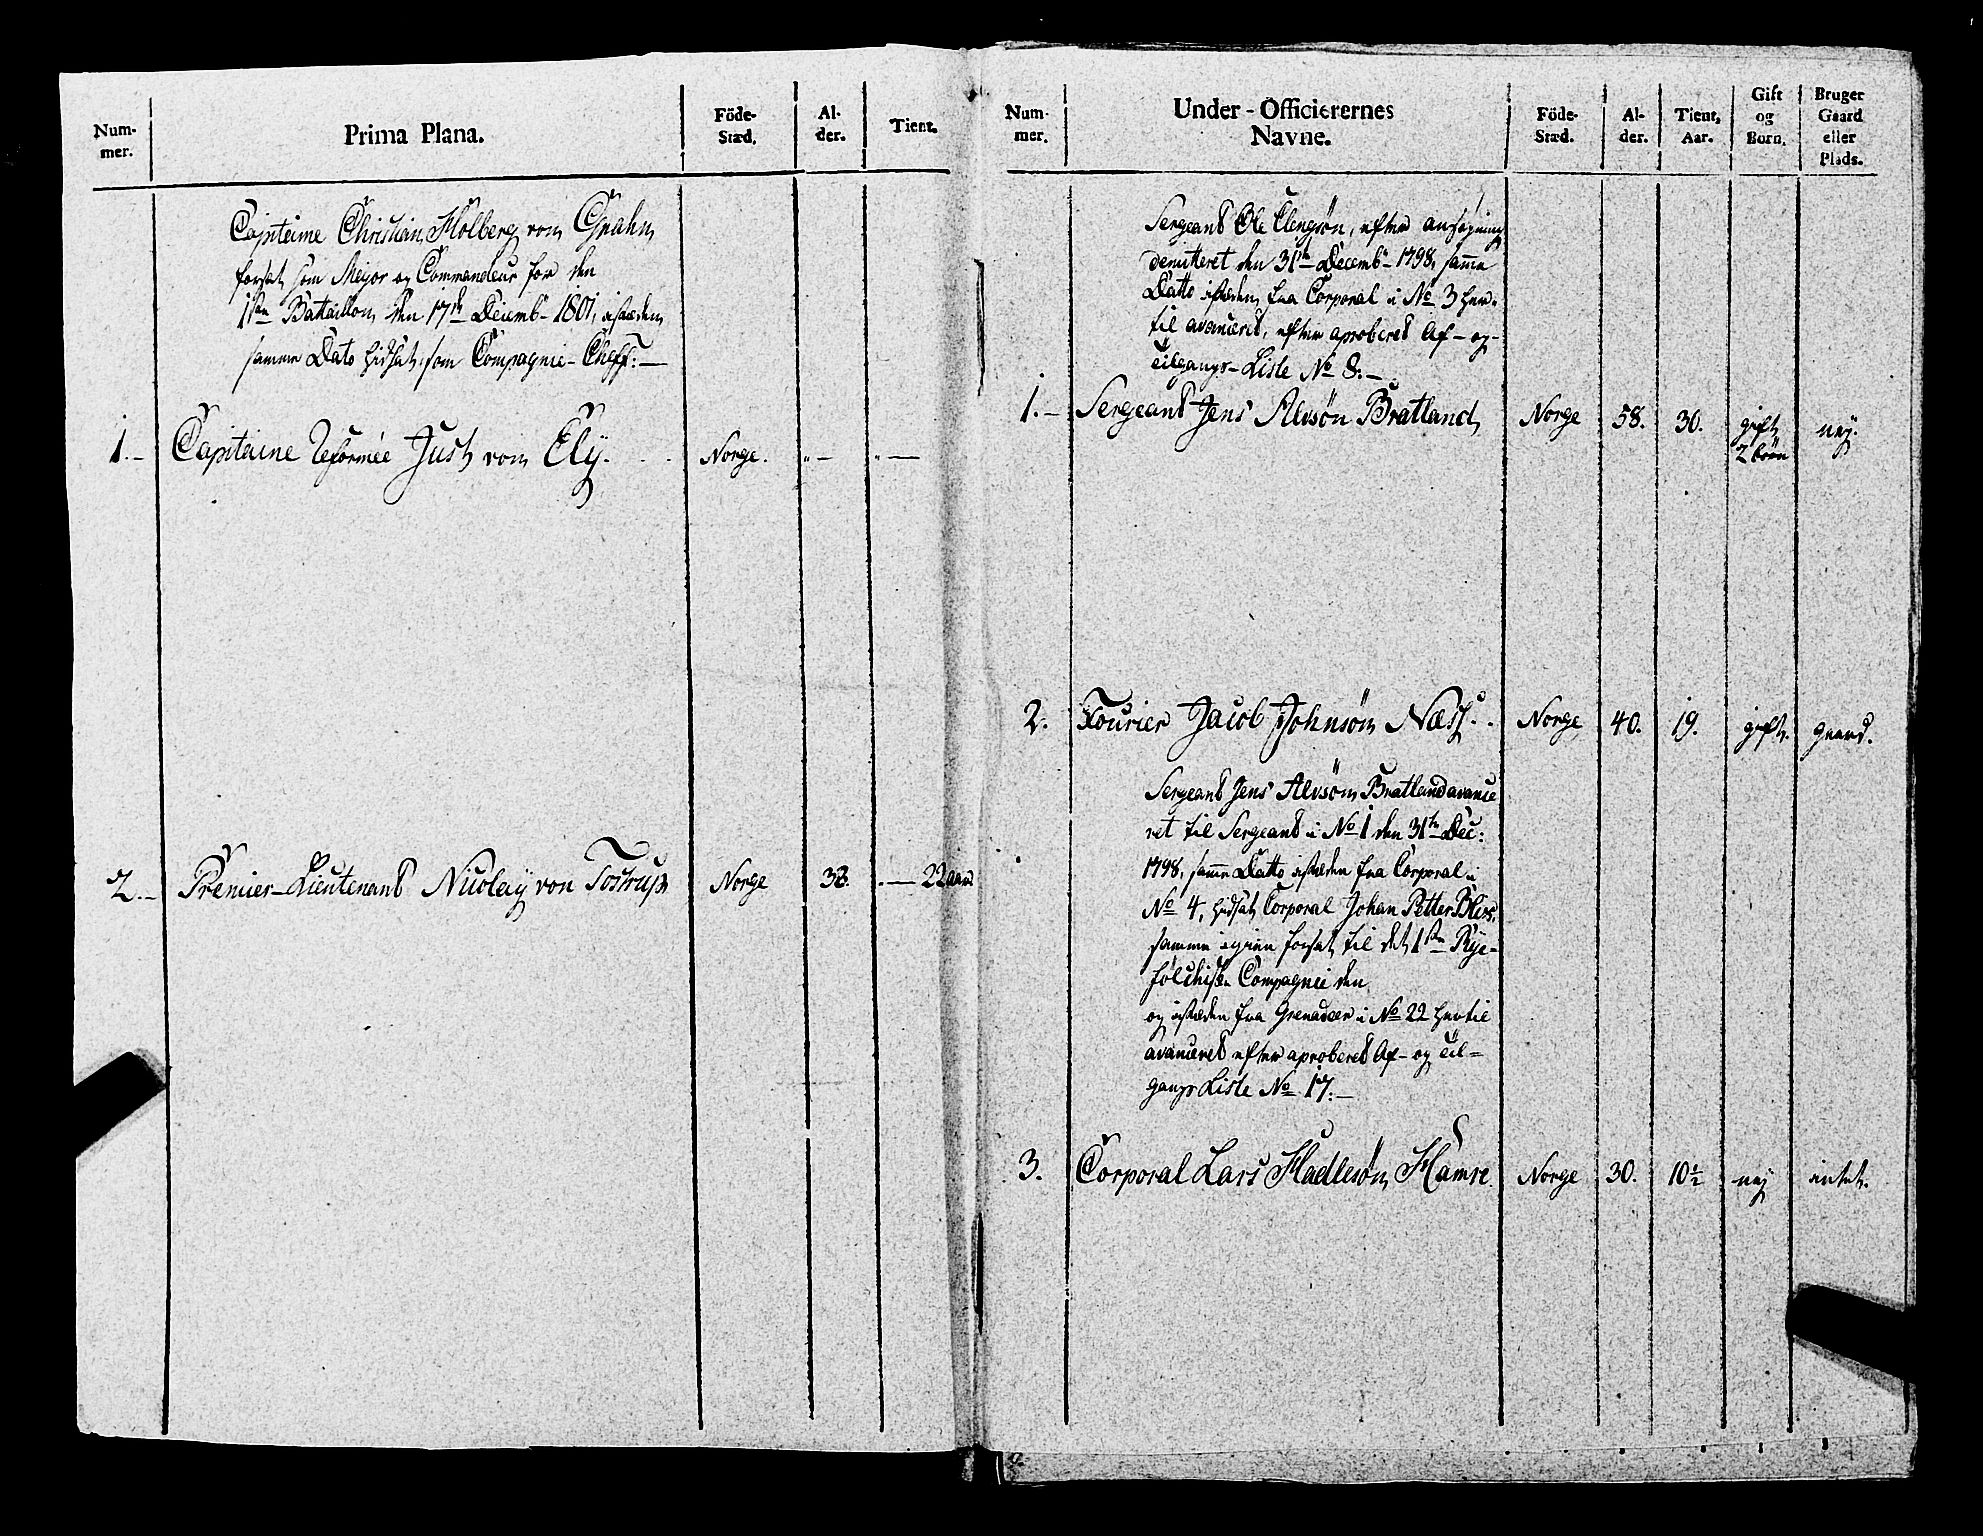 Num-
mer.
Prima Plana.
Föde-
Stæd.
Al-
der.
Tient.
Capitaine Christian Holberg von Grahn
forsat som Mejor og Commandeur for den
1ste Battaillon den 17de Decembr 1801, isteden
samme Dato hidsat som Compagnie-Cheff:—
1.— Capitaine Reformée Just von Ely. Norge. „— „—
2.— Premier-Lieutenant Nicolay von Tostrup Norge 38. .— 22 aar
Num-
mer.
Under-Officierernes
Navne.
Föde-
Stæd.
Al-
der.
Tient,
Aar.
Gift
og
Born.
Bruger
Gaard
eller
Plads.
Sergeant Ole Elengsön, efter ansøgning
demitteret den 31te Decembr 1798, samme
Datto isteden fra Corporal i No 3 her-
til avanceret, efter aproberet Af- og-
Tilgangs-Liste No 8.—
1.— Sergeant Jens Alvsön Bratland Norge 58. 30. gift nej.
2 börn
2. Fourier Jacob Johnsön Næss. Norge 40. 19. gift. gaard.
Sergeant Jens Alvsön Bratland avance
ret til Sergeant i No 1 den 31te Dec:
1798, samme Datto isteden fra Corporal i
No 4, hidsat Corporal Johan Petter
samme igien forsat til det 1ste Rye-
fölchiske Compagnie den
og isteden fra Grenadeer i No 22 hertil
avanceret efter aproberet Af- og Til-
gangs Liste No 17.—
3. Corporal Lars Hadlesön Hamre. Norge 30. 10½ nej intet.